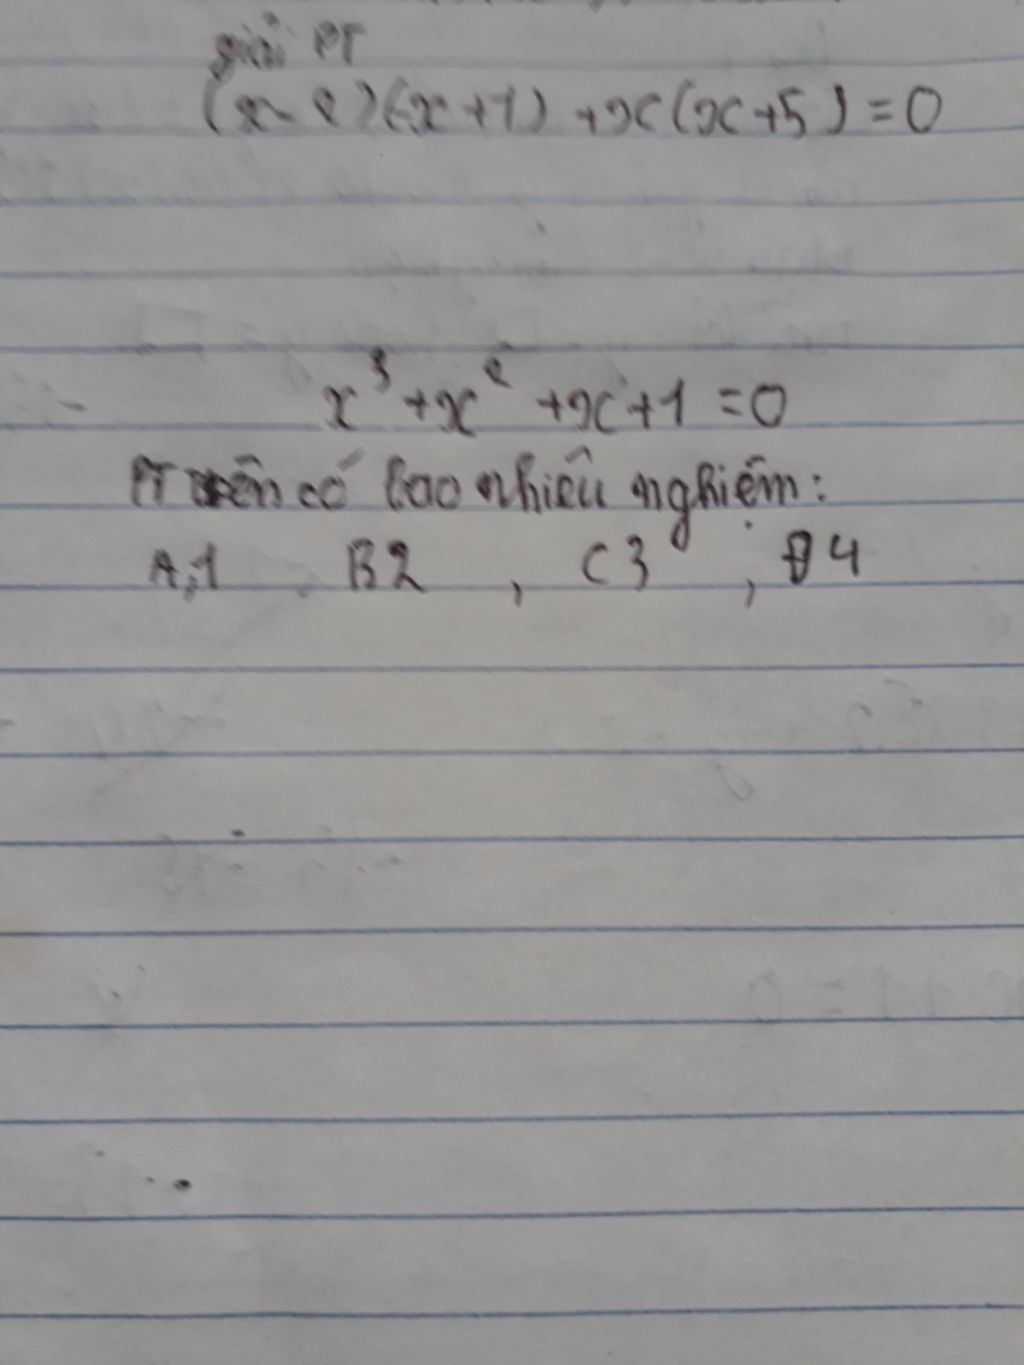 giải PT
(x-2)(x+1)+x(x+5)=0
x³+x²+x+1=0
PT trên có bao nhiêu nghiệm:
A,1 B2 , C3 , D4